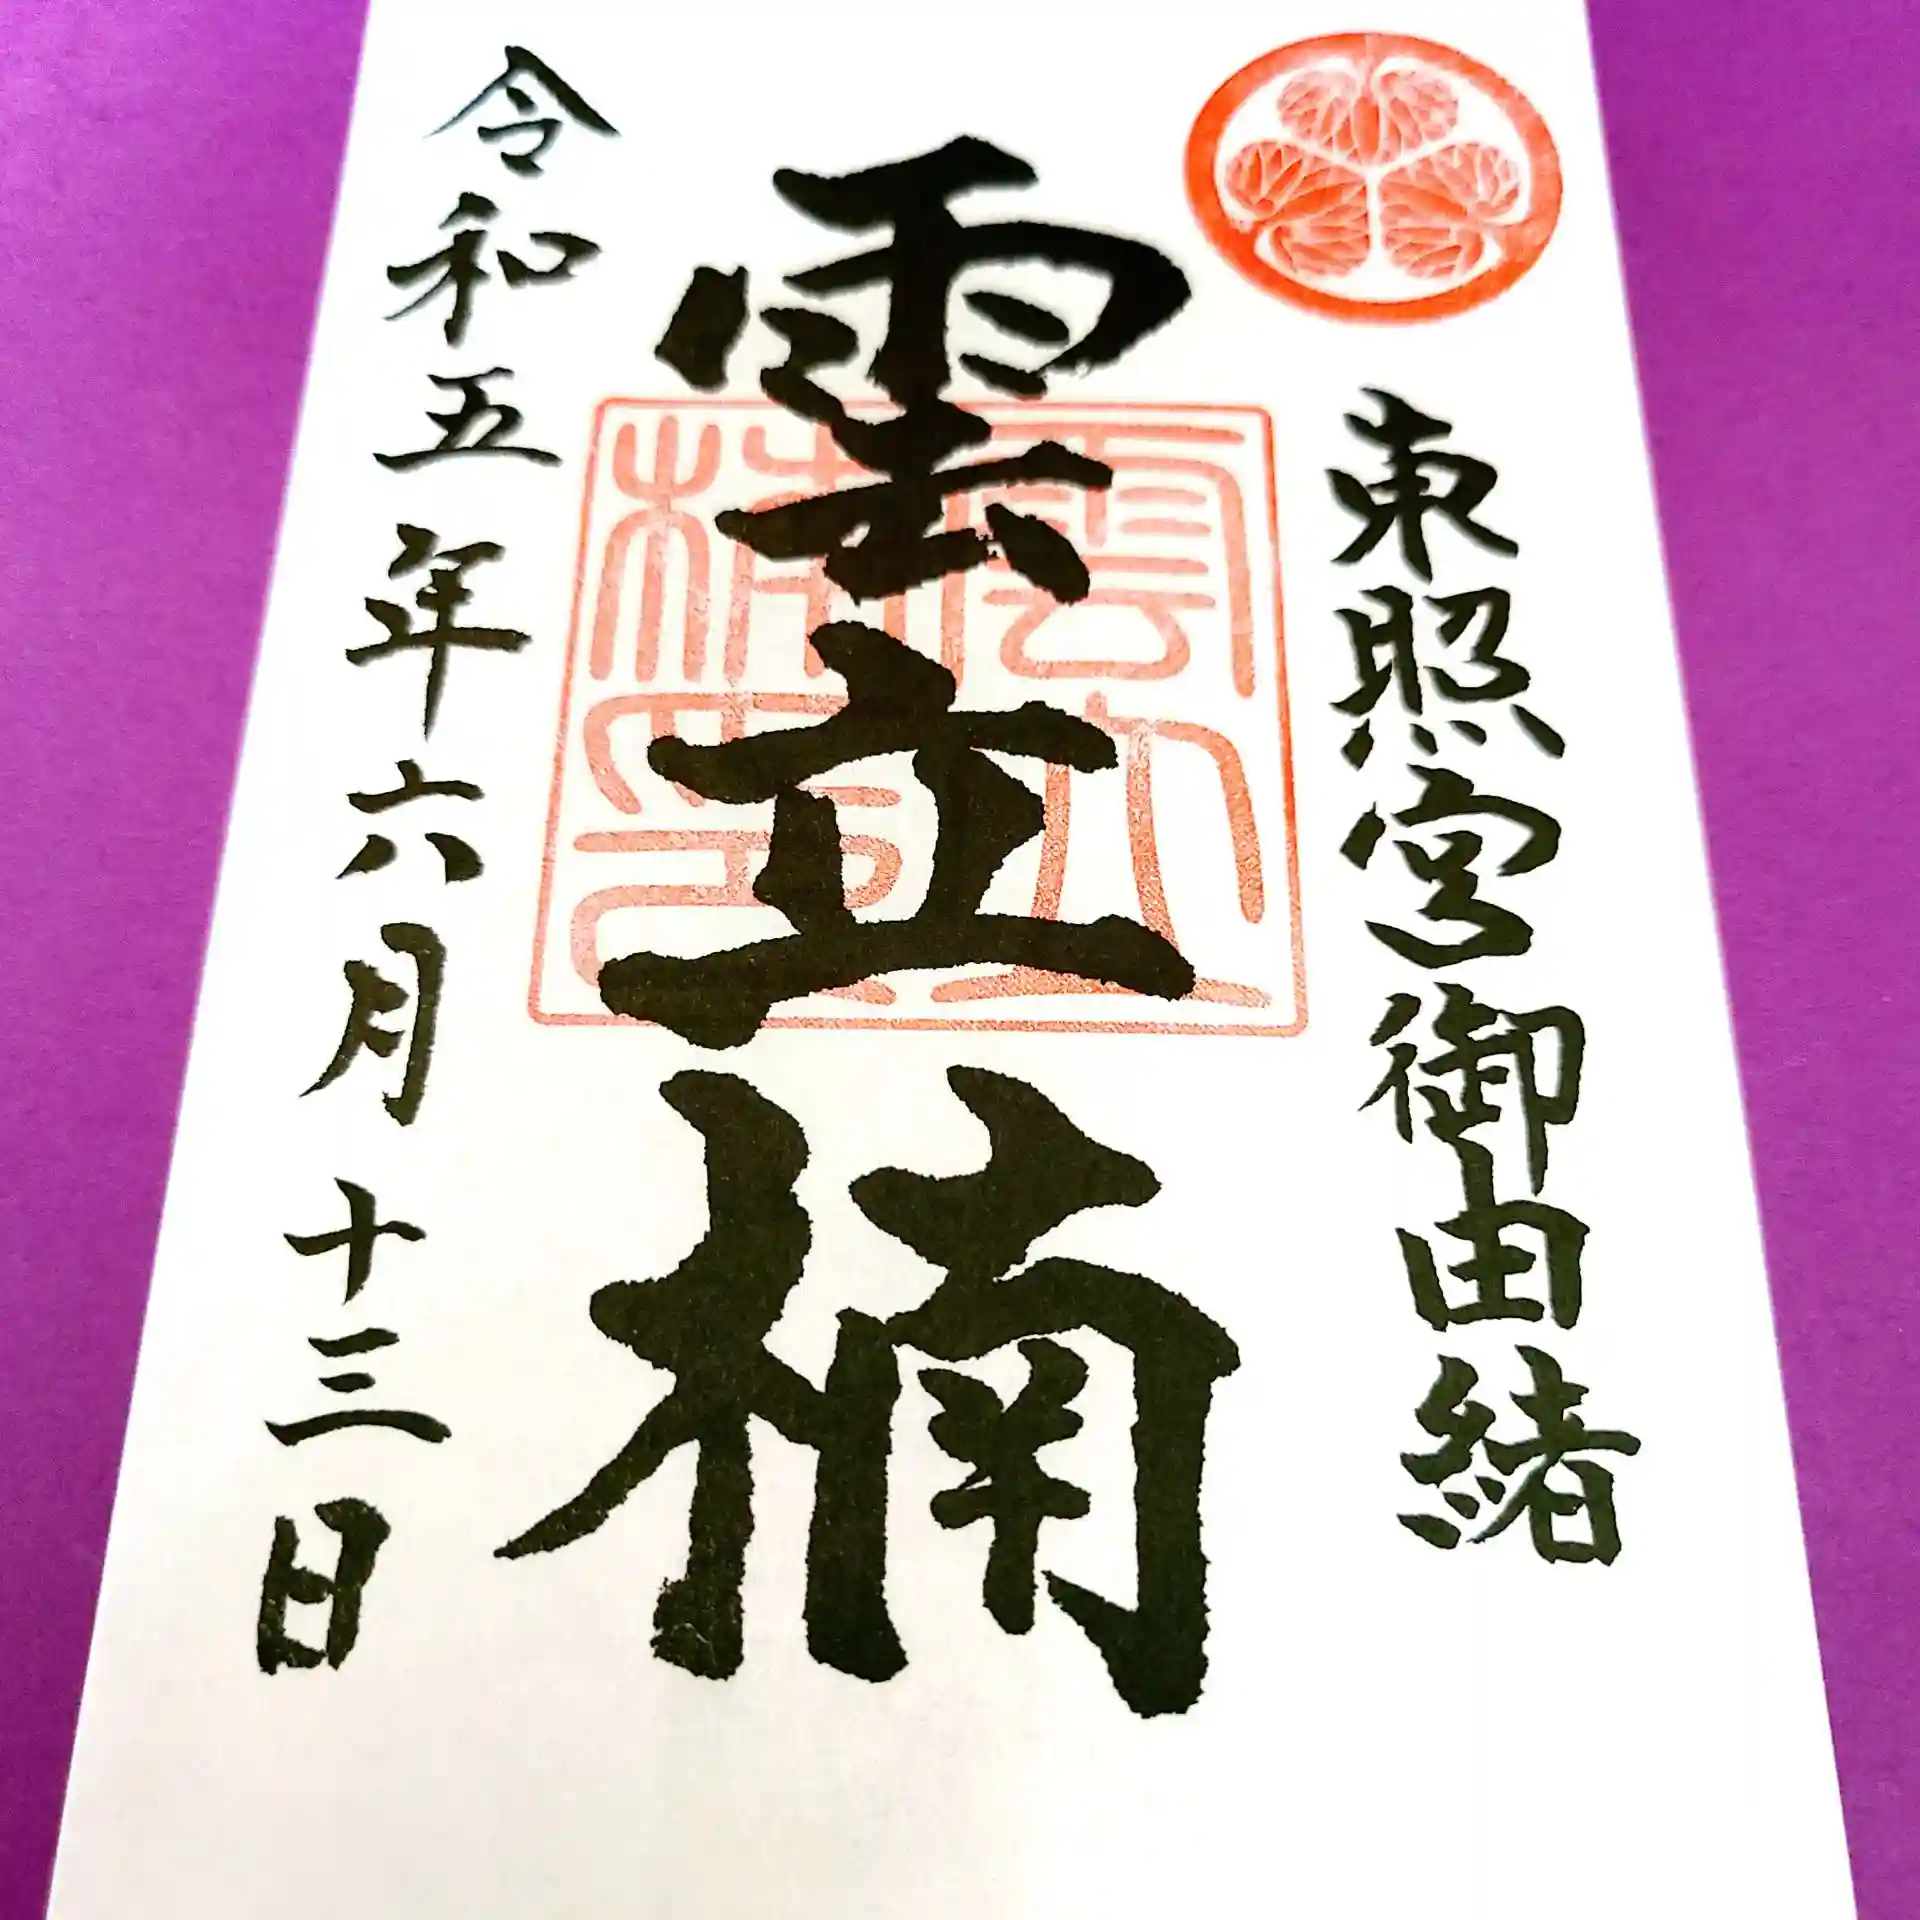 東照宮御由緒
雲立楠
令和五年六月十三日
雲立
楠印